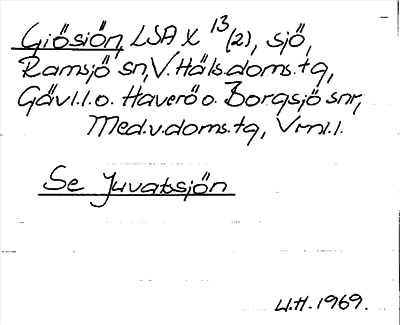 Giösiön, LSA X 13 (2), sjö,
Ramsjö sn, V. Häls.doms.tg,
Gävl.l.o. Haverö o. Borgsjö snr,
Med.v.doms.tg, Vrnl.l.
Se Juvatsjön
U.H. 1969.